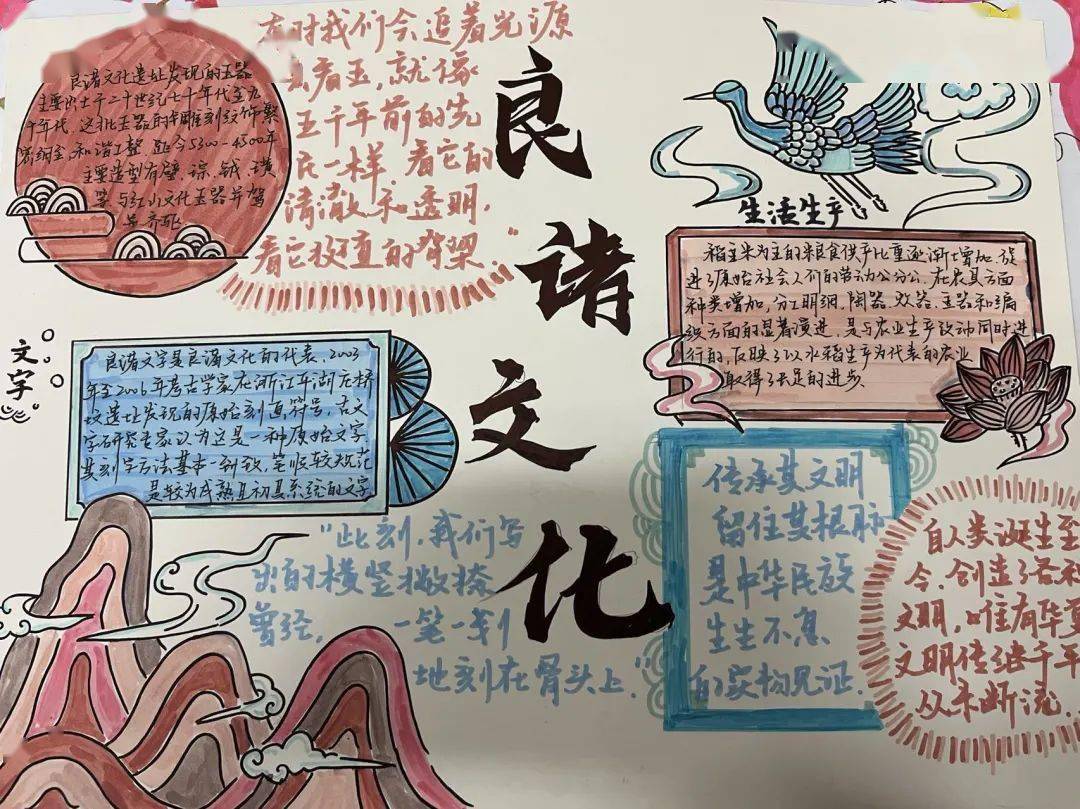 良渚文化
良渚文化遗址发现的玉器
主要出土于二十世纪七十年代至九
十年代，这批玉器的雕刻纹饰繁
密细至，和谐工整，距今5300-4500年
主要造型有璧、琮、钺、璜
等，与红山文化玉器并驾
齐驱
有时我们会追着光源
去看玉，就像
五千年前的先
民一样，看它的
清澈和透明，
看它挺直的脊梁。”
生活生产
稻米为主的粮食供产比重逐渐增加，促
进了原始社会人们的劳动分公，在农具方面
种类增加，分工明细，陶器、玉器和编
织方面的显著演进，是与农业生产改动同时进
行的，反映了以水稻生产为代表的农业
取得了长足的进步
文字
良渚文字是良渚文化的代表，2003
年至2006年考古学家在浙江平湖庄桥
坟遗址发现的原始刻画符号，古文
字研究专家以为这是一种原始文字，
其刻字方法基本一致，笔顺较规范
是较为成熟且初具系统的文字
“此刻，我们写
出的横竖撇捺
曾经，一笔一划
地刻在骨头上。”
传承其文明
留住其根脉
是中华民族
生生不息
的实物见证.
自人类诞生至
今，创造了各种
文明，唯有华夏
文明传继千年
从未断流.